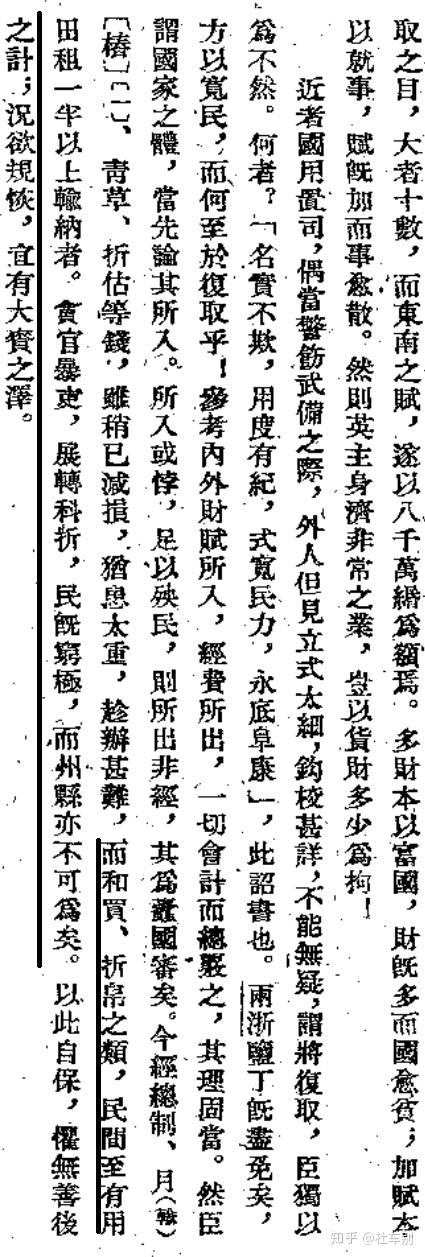 取之目，大者十數，而東南之賦，遂以八千萬緡爲額焉。多財本以富國，財旣多而國愈貧；加賦本
以就事，賦旣加而事愈散。然則英主身濟非常之業，豈以貨財多少爲拘！
近者國用置司，偶當警飭武備之際，外人但見立式太細，鈎校甚詳，不能無疑，謂將復取，臣獨以
爲不然。何者？「名實不欺，用度有紀，式寬民力，永底阜康」，此詔書也。兩浙鹽丁旣盡免矣，
方以寬民，而何至於復取乎！參考內外財賦所入，經費所出，一切會計而總覈之，其理固當。然臣
謂國家之體，當先論其所入。所入或悖，足以殃民，則所出非經，其爲蠹國審矣。今經總制、月
〔樁〕〔一〕、靑草、折估等錢，雖稍已減損，猶患太重，趁辦甚難，而和買、折帛之類，民間至有用
田租一半以上輸納者。貪官暴吏，展轉科折，民旣窮極，而州縣亦不可爲矣。以此自保，懼無善後
之計；況欲規恢，宜有大賚之澤。
知乎 @杜车别